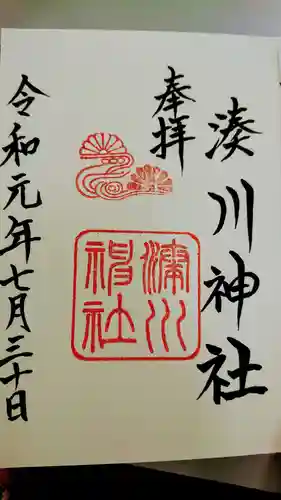 湊川神社
奉拝
湊川神社
令和元年七月三十日